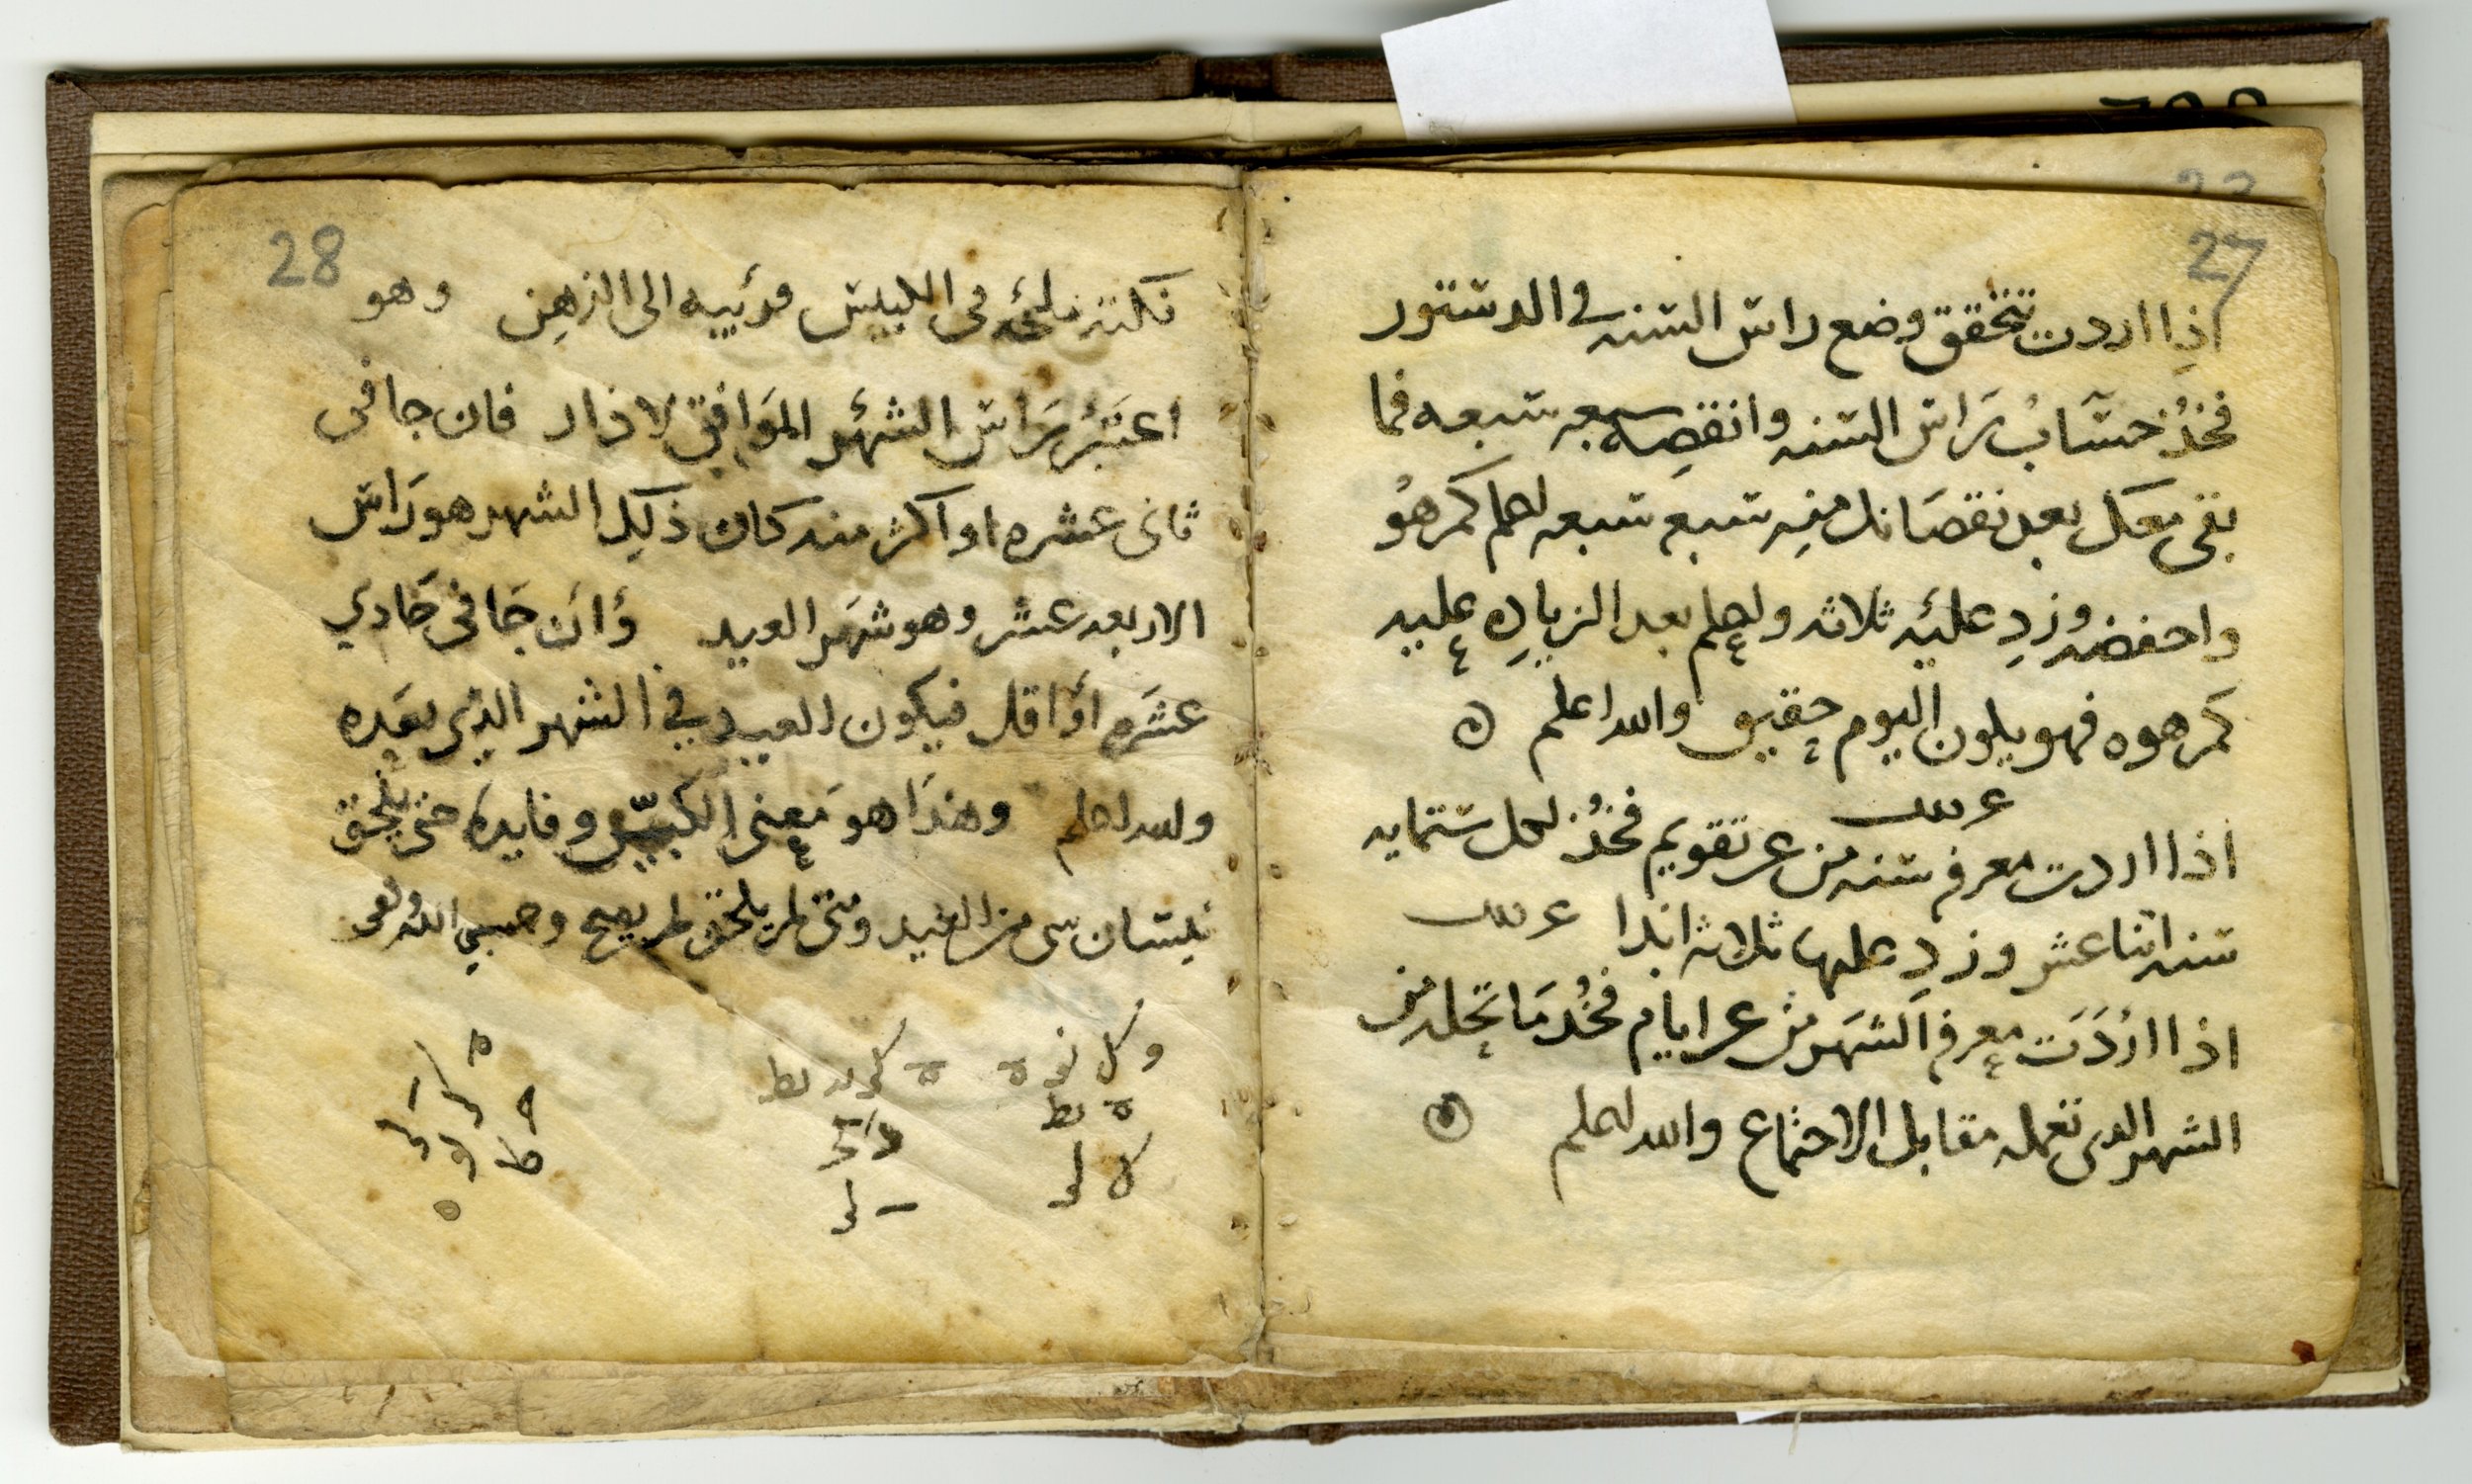 27
اذا اردت تتحقق وضع راس السنه في الدستور
فخذ حساب راس السنه وانقصه سبعه سبعه فما
بقى معك بعد نقصانك منه سبعه سبعه اعلم كم هو
واحفضه وزد عليه ثلاثه واعلم بعد الزياده عليه
كم هوه فهو يكون اليوم حقيق والله اعلم
اذا اردت معرفة سنه من عر تقويم فخذ لكل ستمايه
سنه اثنا عشر وزد عليها ثلاثه ابدا
اذا اردت معرفة الشهر من عر ايام فخذ ما تجد من
الشهر الدى تعمله مقابل الاجتماع والله اعلم
28
نكته ملحه فى الكبيس الى الزهن وهو
اعتبر راس الشهر الموافق لاذار فان جا فى
ثانى عشره او اكثر منه كان ذلك الشهر هو راس
الاربعه عشر وهو شهر العيد وان جا فى حادي
عشره او اقل فيكون العيد في الشهر الذي بعده
والله اعلم وهذا هو معنى الكبيس وفايده حتى يلحق
نيسان من العيد ومتى لم يلحق لم يصح وحسبي الله